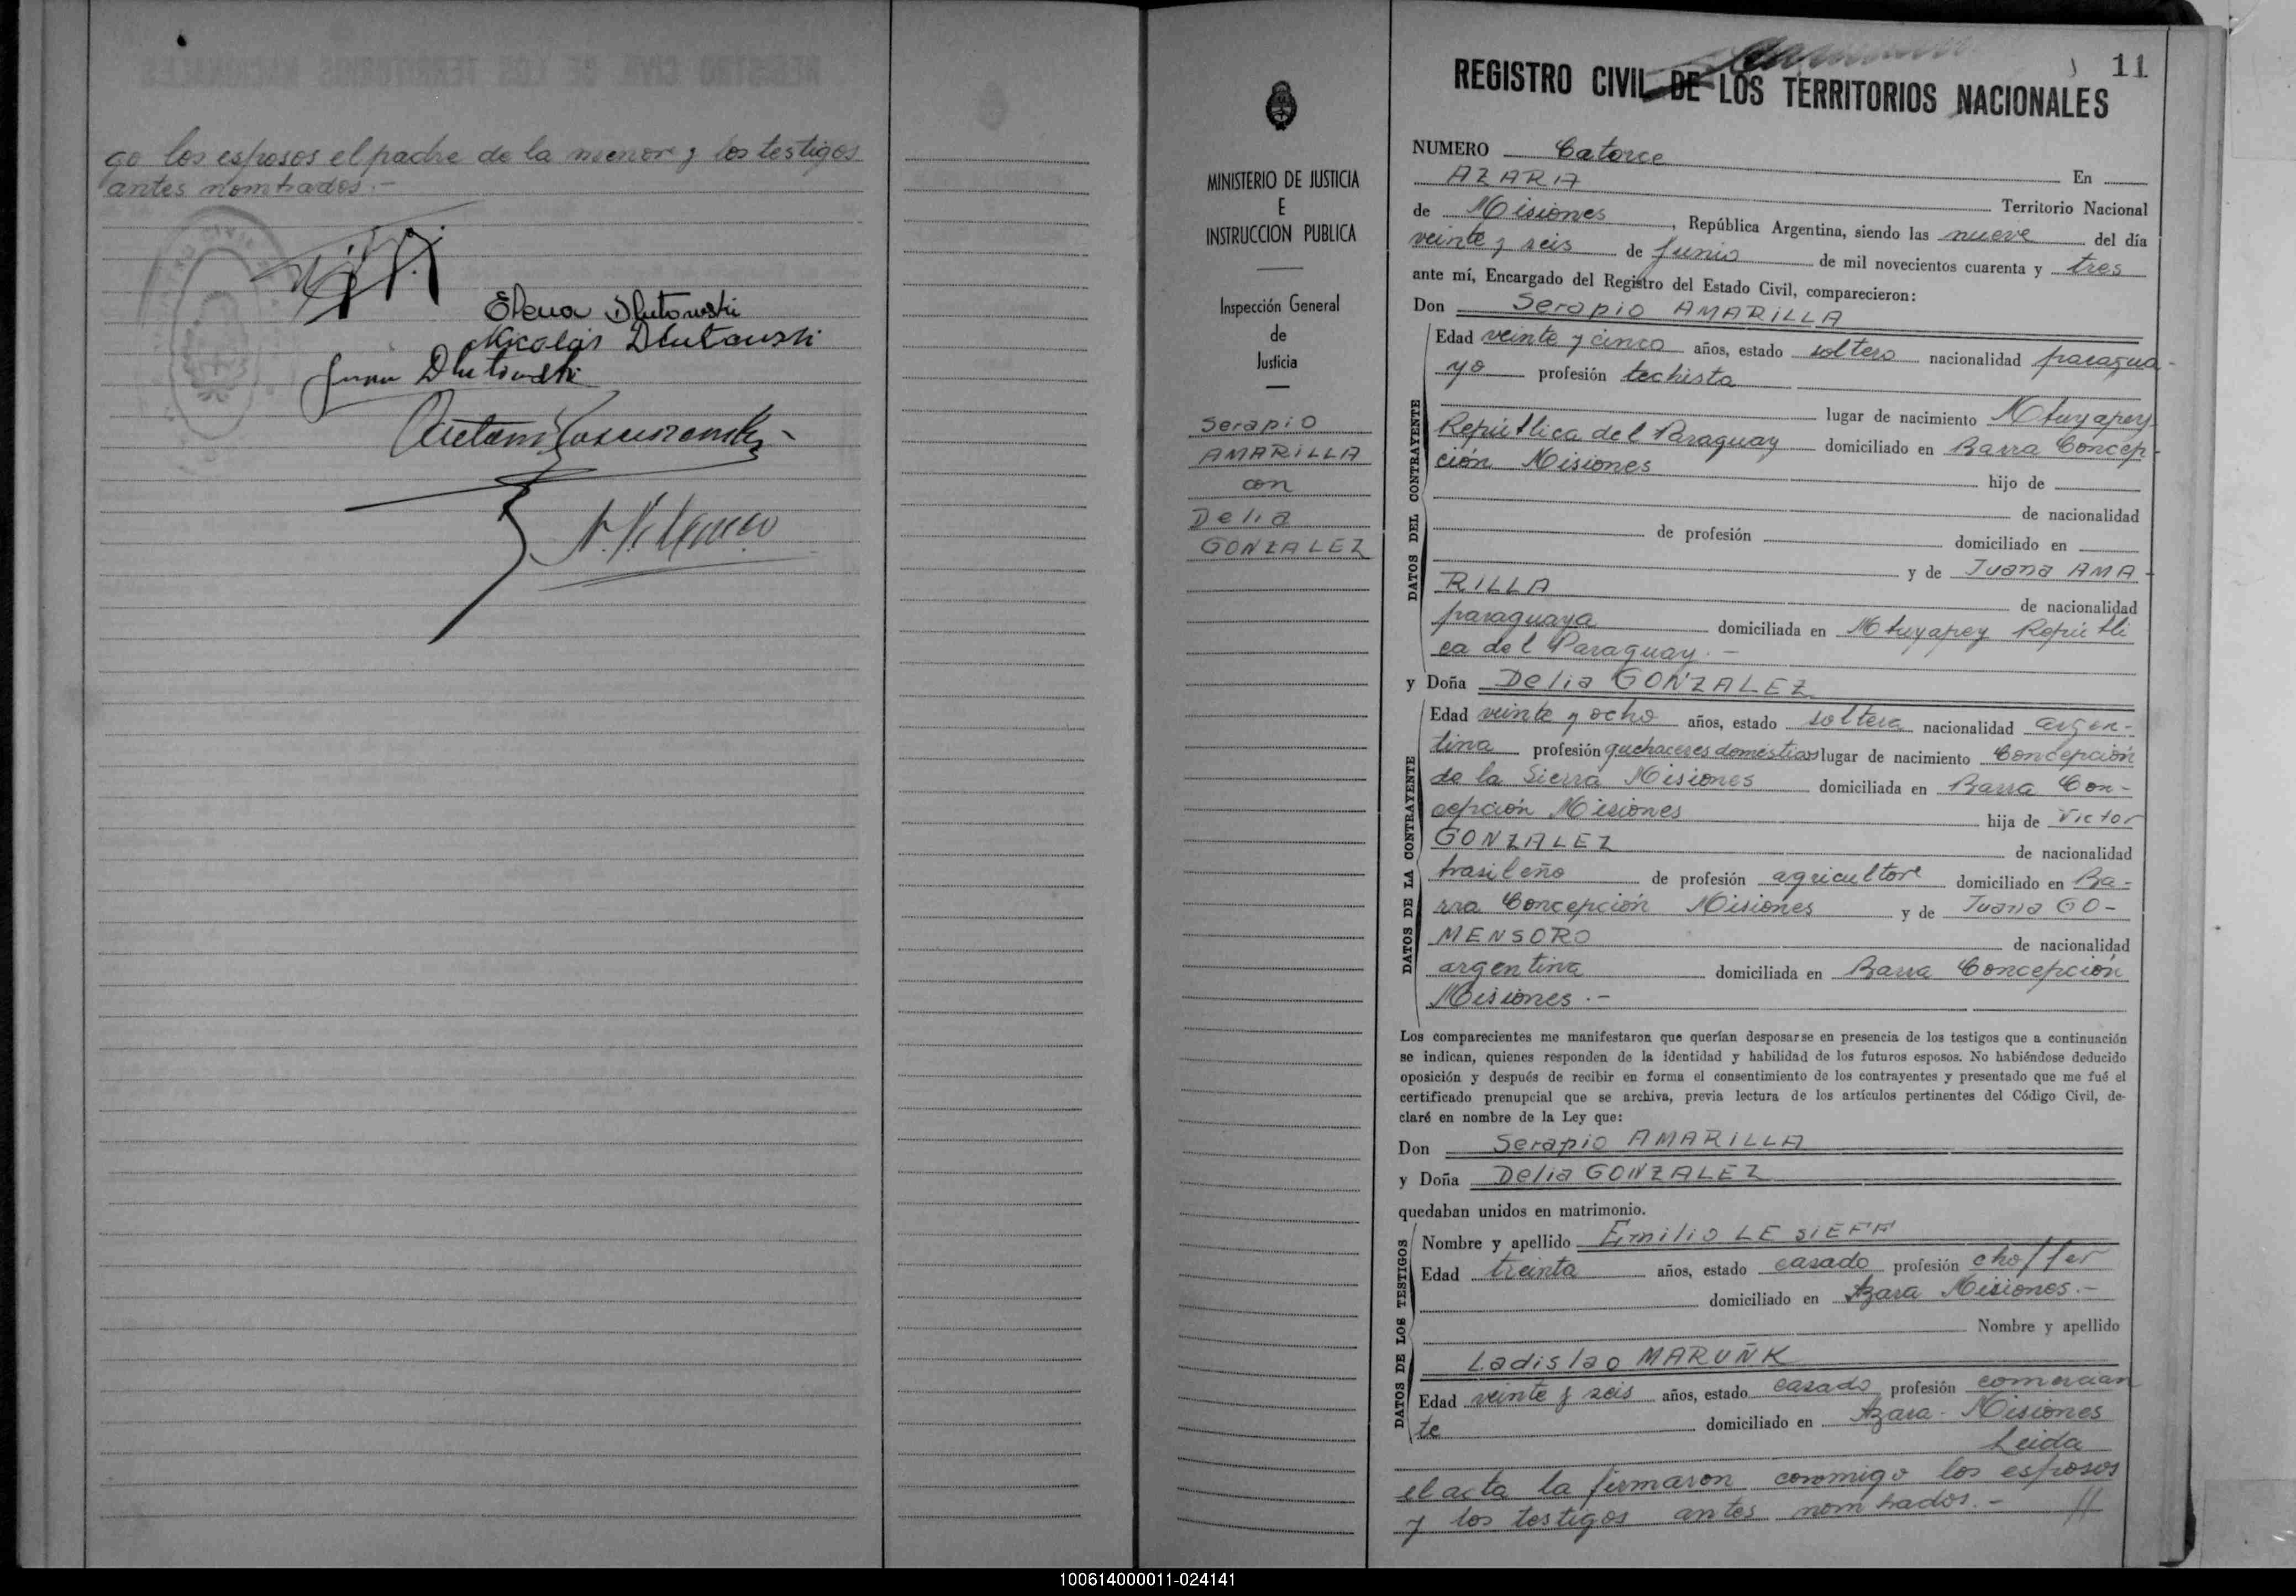 go los esposos el padre de la menor y los testigos
antes nombrados.-
Elena Dlutowski
Nicolás Dlutowski
Juan Dlutowski
MINISTERIO DE JUSTICIA
E
INSTRUCCION PUBLICA
Inspección General
de
Justicia
Serapio
AMARILLA
con
Delia
GONZALEZ
11
REGISTRO CIVIL DE LOS TERRITORIOS NACIONALES
NUMERO Catorce En
AZARA Territorio Nacional
de Misiones, República Argentina, siendo las nueve del día
veinte y seis de Junio de mil novecientos cuarenta y tres
ante mí, Encargado del Registro del Estado Civil, comparecieron:
Don Serapio AMARILLA
DATOS DEL CONTRAYENTE
Edad veinte y cinco años, estado soltero nacionalidad paragua-
yo profesión techista
lugar de nacimiento Mbuyapey
República del Paraguay domiciliado en Barra Concep-
ción Misiones hijo de
de nacionalidad
de profesión domiciliado en
y de Juana AMA-
RILLA de nacionalidad
paraguaya domiciliada en Mbuyapey Repúbli
ca del Paraguay.-
y Doña Delia GONZALEZ
DATOS DE LA CONTRAYENTE
Edad veinte y ocho años, estado soltera nacionalidad argen-
tina profesión quehaceres domésticos lugar de nacimiento Concepción
de la Sierra Misiones domiciliada en Barra Con-
cepción Misiones hija de Victor
GONZALEZ de nacionalidad
brasileño de profesión agricultor domiciliado en Ba-
rra Concepción Misiones y de Juana GO-
MENSORO de nacionalidad
argentina domiciliada en Barra Concepción
Misiones.-
Los comparecientes me manifestaron que querían desposarse en presencia de los testigos que a continuación
se indican, quienes responden de la identidad y habilidad de los futuros esposos. No habiéndose deducido
oposición y después de recibir en forma el consentimiento de los contrayentes y presentado que me fué el
certificado prenupcial que se archiva, previa lectura de los artículos pertinentes del Código Civil, de-
claré en nombre de la Ley que:
Don Serapio AMARILLA
y Doña Delia GONZALEZ
quedaban unidos en matrimonio.
DATOS DE LOS TESTIGOS
Nombre y apellido Emilio LE SIEFA
Edad treinta años, estado casado profesión choffer
domiciliado en Azara Misiones.-
Nombre y apellido
Ladislao MARUÑK
Edad veinte y seis años, estado casado profesión comercian
te domiciliado en Azara - Misiones
Leida
el acta la firmaron conmigo los esposos
y los testigos antes nombrados.- //
100614000011-024141